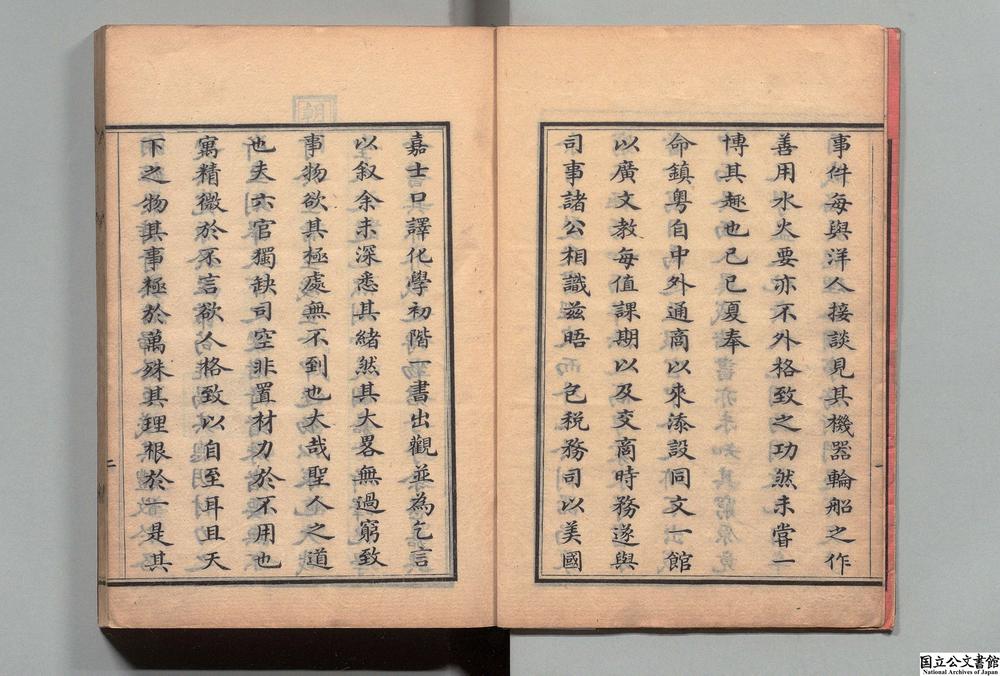 事件每與洋人接談見其機器輪船之作
善用水火要亦不外格致之功然未嘗一
博其趣也己巳夏奉
命鎮粤自中外通商以來添設同文一館
以廣文教每值課期以及交商時務遂與
司事諸公相識兹晤 包税務司以美國
一
嘉士口譯化學初階一書出觀並為乞言
以叙余未深悉其緒然其大畧無過窮致
事物欲其極處無不到也大哉聖人之道
也夫六官獨缺司空非置材力於不用也
寓精微於不言欲人格致以自至耳且天
下之物其事極於萬殊其理根於一是其
二
国立公文書館
National Archives of Japan